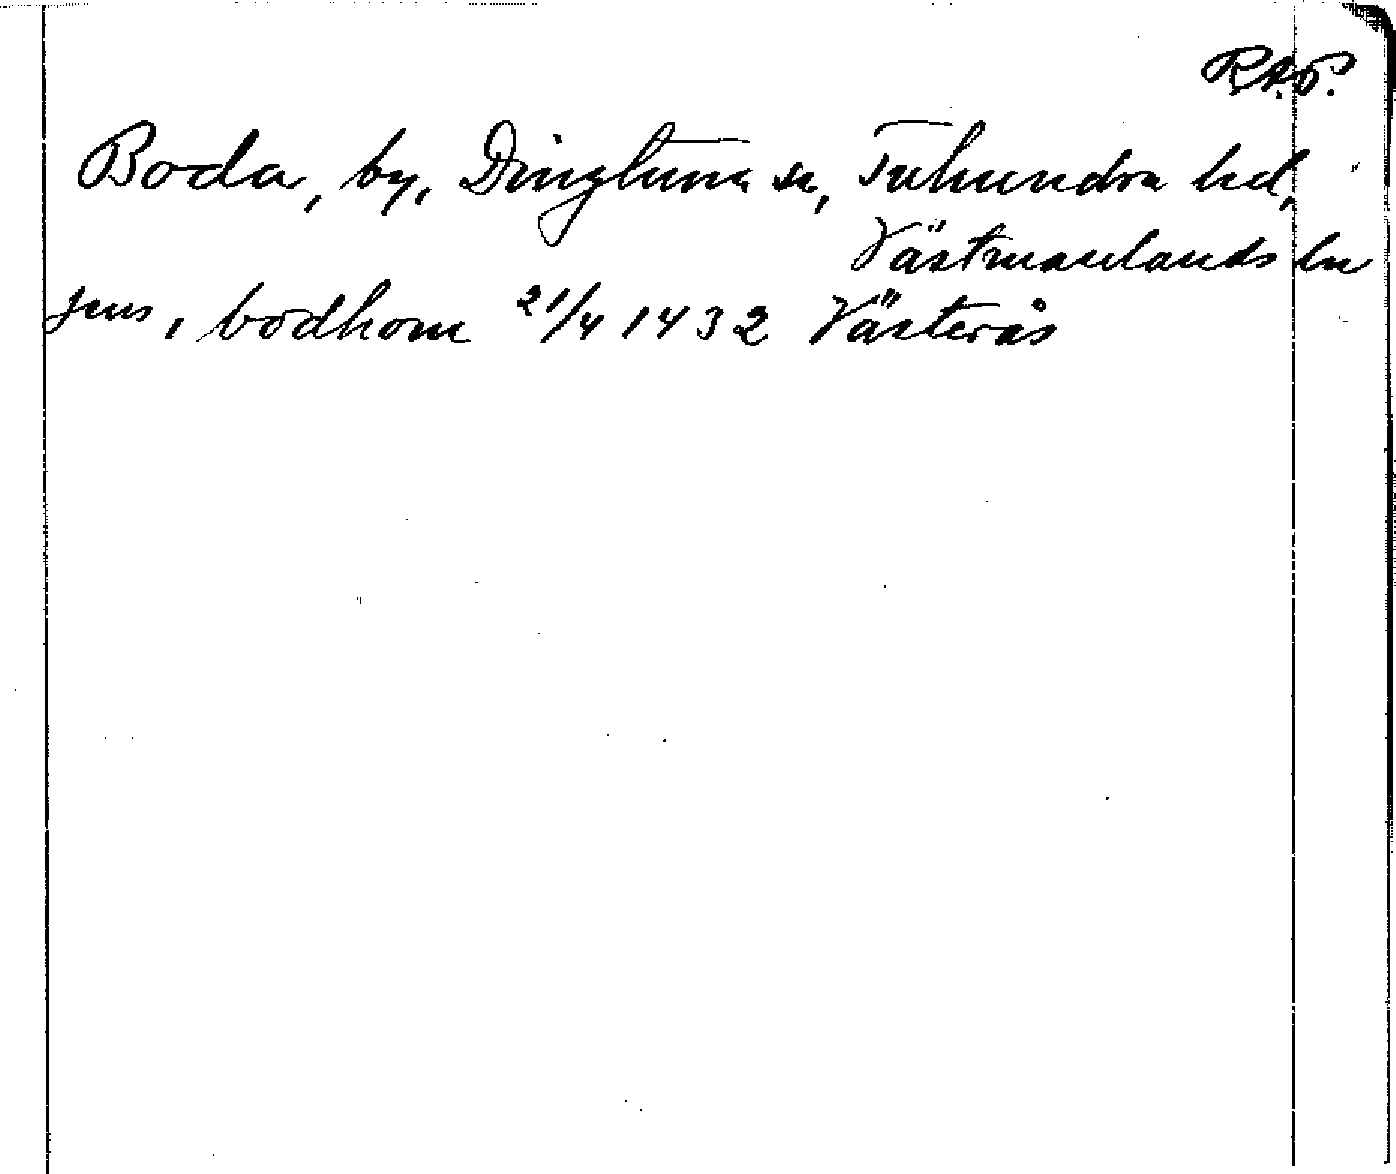 R.A.P.
Boda, by, Dingtuna sn, Tuhundra hd,
Västmanlands ln
jnus, bodhom 21/4 1432 Västerås